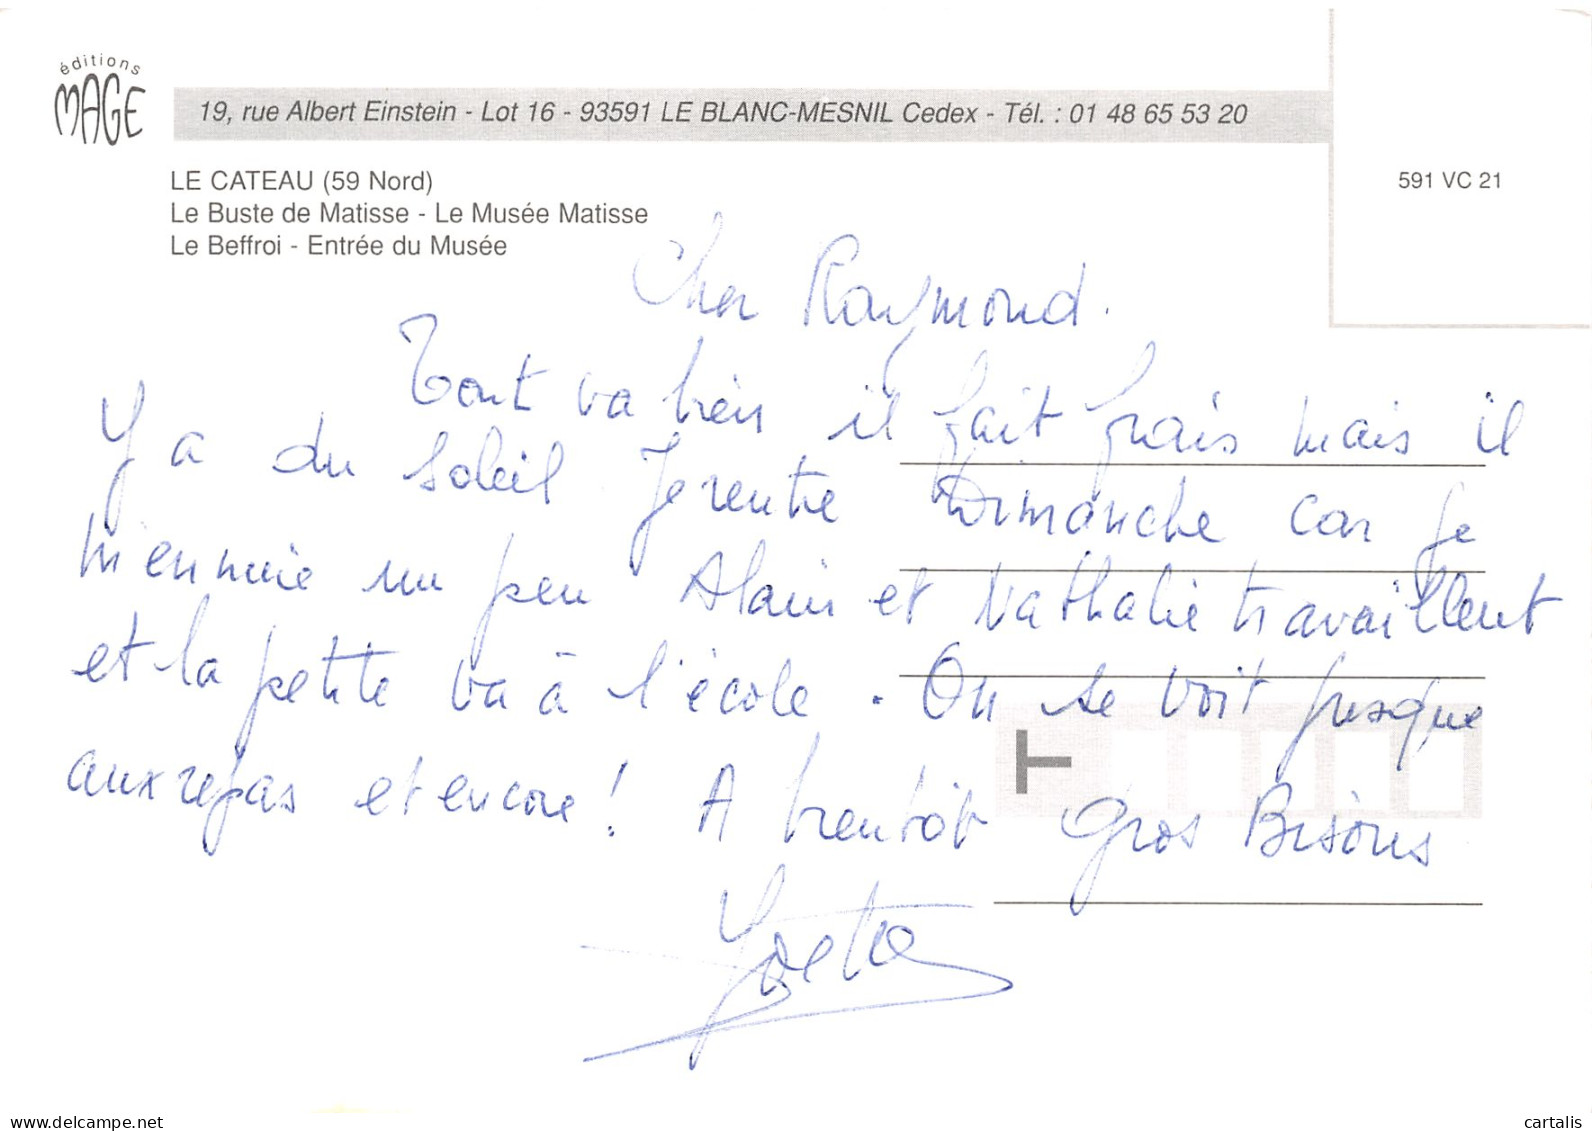 éditions
MAGE
19, rue Albert Einstein - Lot 16 - 93591 LE BLANC-MESNIL Cedex - Tél. : 01 48 65 53 20
LE CATEAU (59 Nord)
Le Buste de Matisse - Le Musée Matisse
Le Beffroi - Entrée du Musée
591 VC 21
Cher Raymond.
Tout va bien il fait frais mais il
Y a du soleil Je rentre Dimanche car je
m'ennuie un peu Alain et Nathalie travaillent
et la petite va à l'école. On se voit presque
aux repas et encore! A bientôt Gros Bisous
T
www.delcampe.net
cartalis